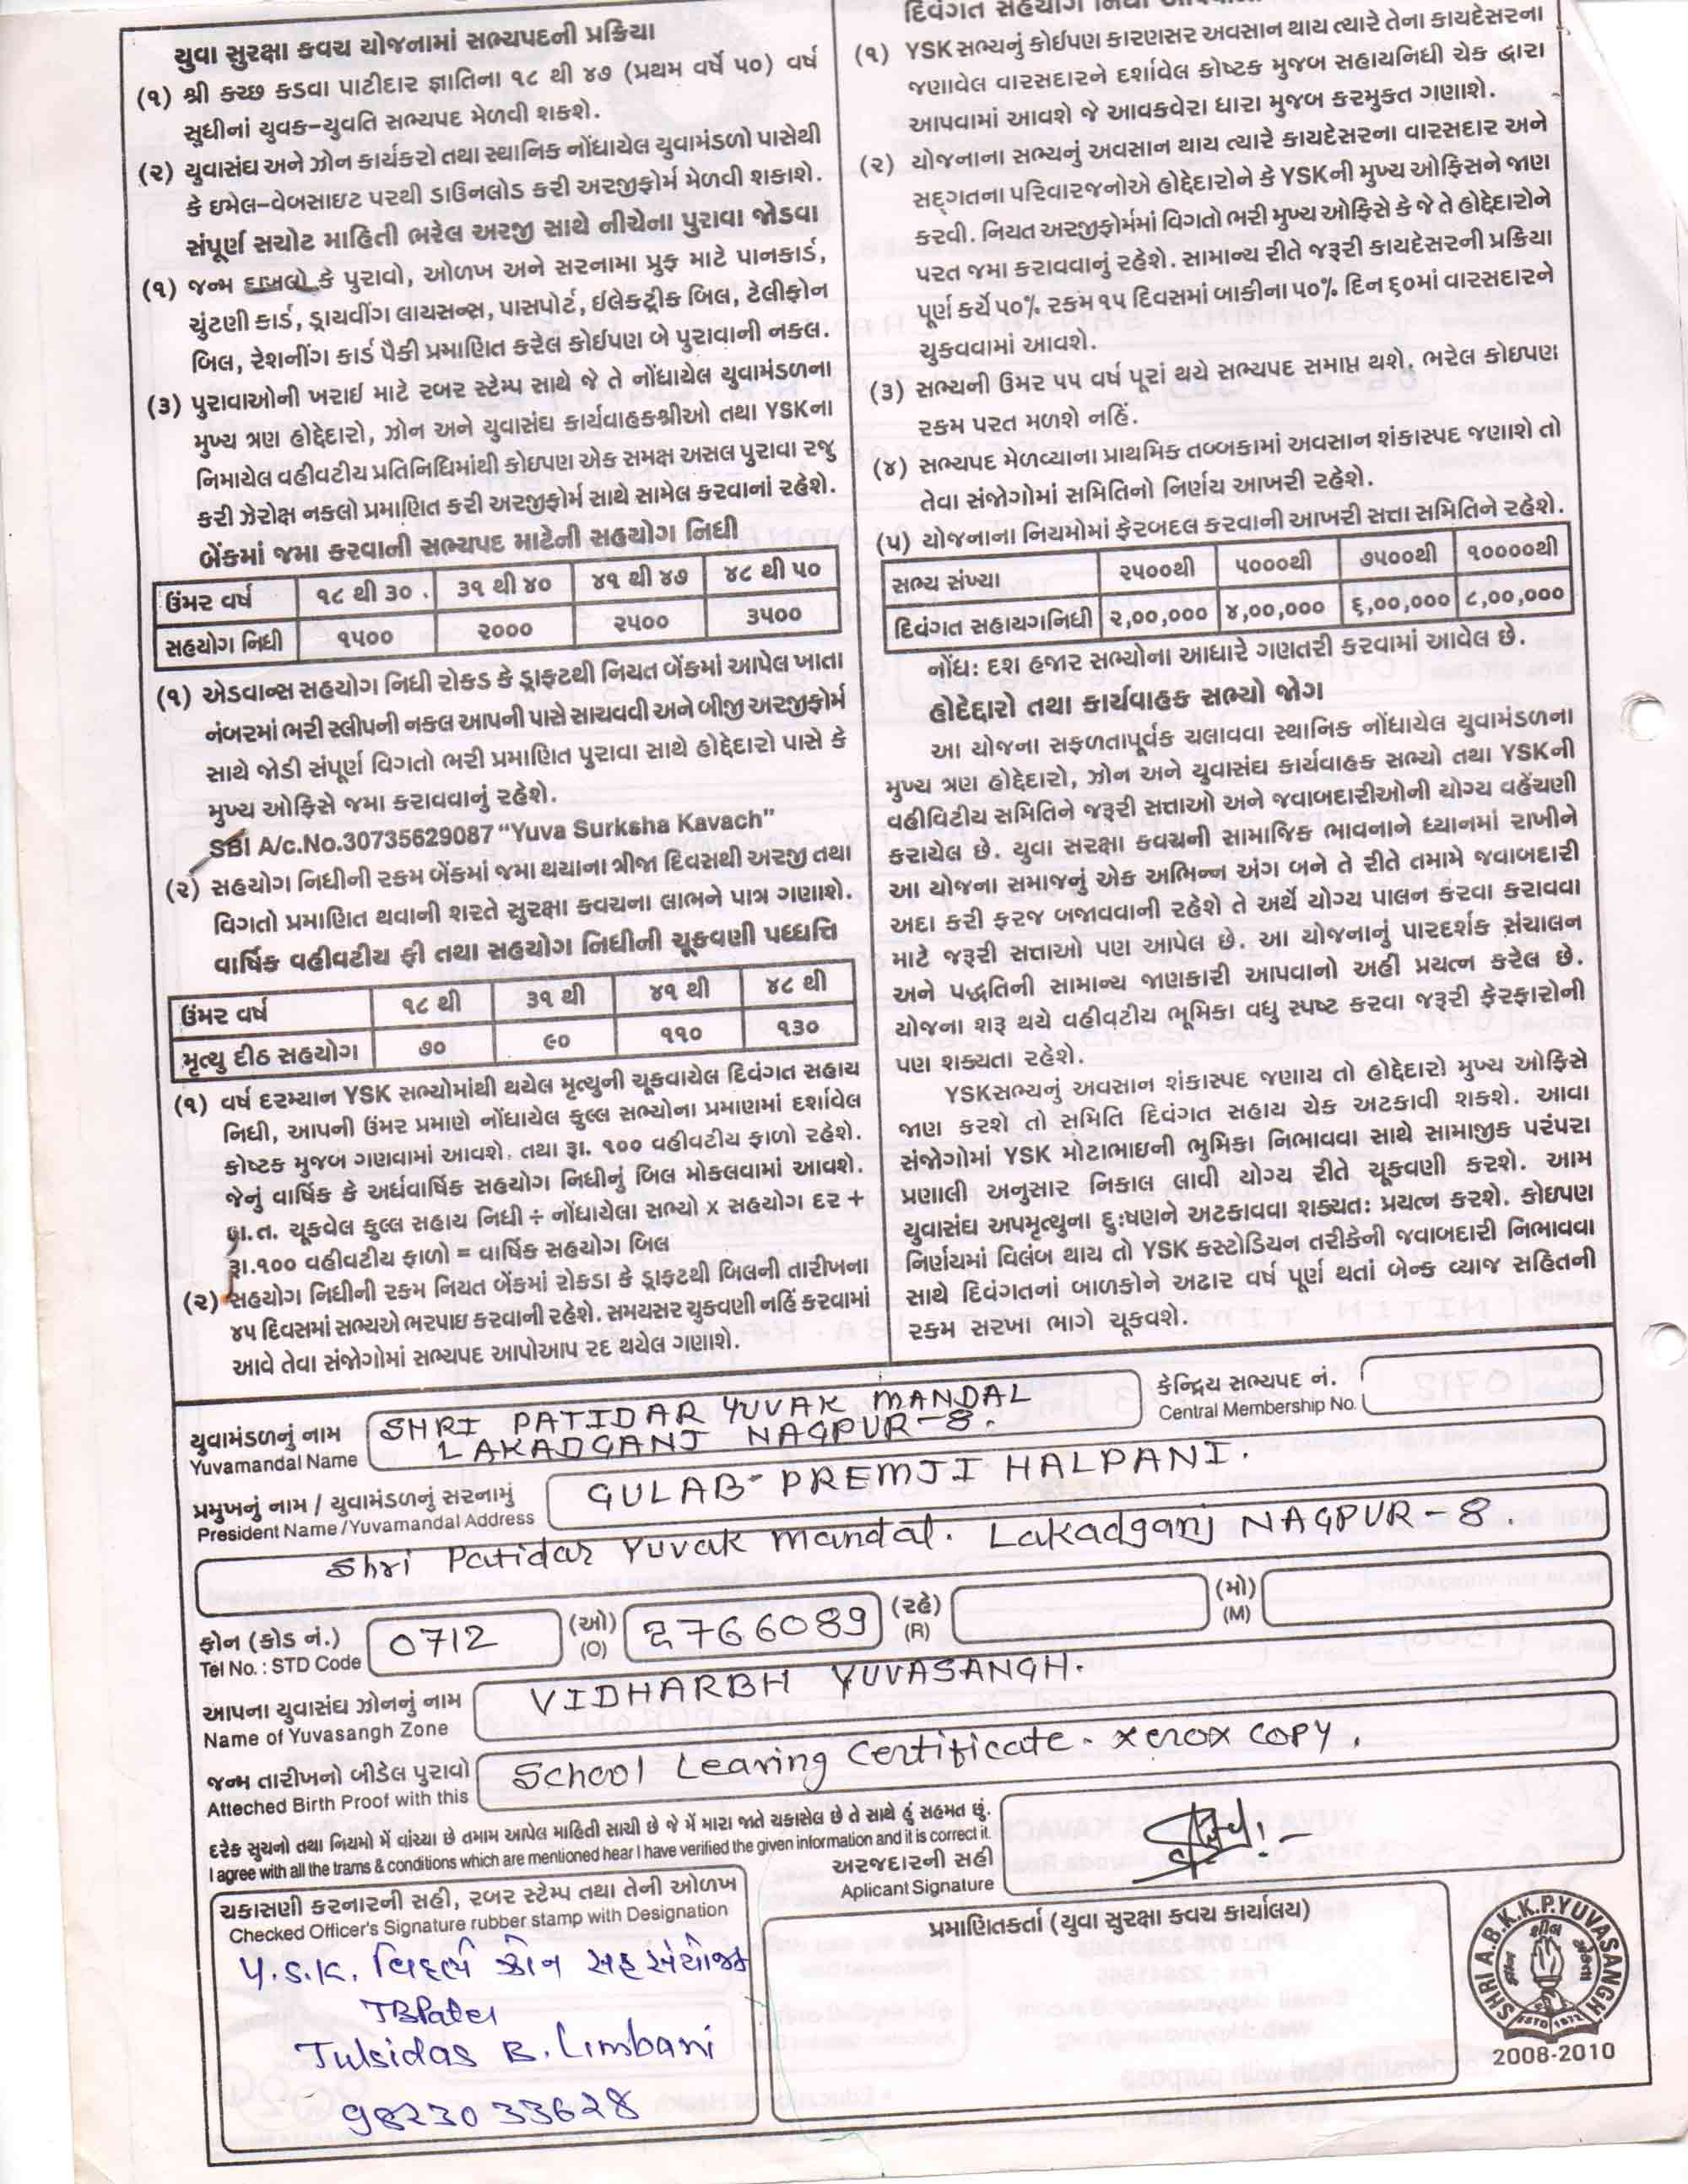 યુવા સુરક્ષા કવચ યોજનામાં સભ્યપદની પ્રક્રિયા
(૧) શ્રી કચ્છ કડવા પાટીદાર જ્ઞાતિના ૧૮ થી ૪૭ (પ્રથમ વર્ષે ૫૦) વર્ષ
સુધીનાં યુવક-યુવતિ સભ્યપદ મેળવી શકશે.
(૨) યુવાસંઘ અને ઝોન કાર્યકરો તથા સ્થાનિક નોંધાયેલ યુવામંડળો પાસેથી
કે ઇમેલ-વેબસાઇટ પરથી ડાઉનલોડ કરી અરજીફોર્મ મેળવી શકાશે.
સંપૂર્ણ સચોટ માહિતી ભરેલ અરજી સાથે નીચેના પુરાવા જોડવા
(૧) જન્મ દાખલો કે પુરાવો, ઓળખ અને સરનામા પ્રુફ માટે પાનકાર્ડ,
ચુંટણી કાર્ડ, ડ્રાયવીંગ લાયસન્સ, પાસપોર્ટ, ઈલેકટ્રીક બિલ, ટેલીફોન
બિલ, રેશનીંગ કાર્ડ પૈકી પ્રમાણિત કરેલ કોઈપણ બે પુરાવાની નકલ.
(૩) પુરાવાઓની ખરાઈ માટે રબર સ્ટેમ્પ સાથે જે તે નોંધાયેલ યુવામંડળના
મુખ્ય ત્રણ હોદ્દેદારો, ઝોન અને યુવાસંઘ કાર્યવાહકશ્રીઓ તથા YSKના
નિમાયેલ વહીવટીય પ્રતિનિધિમાંથી કોઇપણ એક સમક્ષ અસલ પુરાવા રજુ
કરી ઝેરોક્ષ નકલો પ્રમાણિત કરી અરજીફોર્મ સાથે સામેલ કરવાનાં રહેશે.
બેંકમાં જમા કરવાની સભ્યપદ માટેની સહયોગ નિધી
ઉંમર વર્ષ ૧૮ થી ૩૦ . ૩૧ થી ૪૦ ૪૧ થી ૪૭ ૪૮ થી ૫૦
સહયોગ નિધી ૧૫૦૦ ૨૦૦૦ ૨૫૦૦ ૩૫૦૦
(૧) એડવાન્સ સહયોગ નિધી રોકડ કે ડ્રાફટથી નિયત બેંકમાં આપેલ ખાતા
નંબરમાં ભરી સ્લીપની નકલ આપની પાસે સાચવવી અને બીજી અરજીફોર્મ
સાથે જોડી સંપૂર્ણ વિગતો ભરી પ્રમાણિત પુરાવા સાથે હોદ્દેદારો પાસે કે
મુખ્ય ઓફિસે જમા કરાવવાનું રહેશે.
SBI A/c.No.30735629087 “Yuva Surksha Kavach”
(૨) સહયોગ નિધીની રકમ બેંકમાં જમા થયાના ત્રીજા દિવસથી અરજી તથા
વિગતો પ્રમાણિત થવાની શરતે સુરક્ષા કવચના લાભને પાત્ર ગણાશે.
વાર્ષિક વહીવટીય ફી તથા સહયોગ નિધીની ચૂકવણી પધ્ધત્તિ
ઉંમર વર્ષ ૧૮ થી ૩૧ થી ૪૧ થી ૪૮ થી
મૃત્યુ દીઠ સહયોગ ૭૦ ૯૦ ૧૧૦ ૧૩૦
(૧) વર્ષ દરમ્યાન YSK સભ્યોમાંથી થયેલ મૃત્યુની ચૂકવાયેલ દિવંગત સહાય
નિધી, આપની ઉંમર પ્રમાણે નોંધાયેલ કુલ્લ સભ્યોના પ્રમાણમાં દર્શાવેલ
કોષ્ટક મુજબ ગણવામાં આવશે. તથા રૂા. ૧૦૦ વહીવટીય ફાળો રહેશે.
જેનું વાર્ષિક કે અર્ધવાર્ષિક સહયોગ નિધીનું બિલ મોકલવામાં આવશે.
દા.ત. ચૂકવેલ કુલ્લ સહાય નિધી ÷ નોંધાયેલા સભ્યો x સહયોગ દર +
રૂા.૧૦૦ વહીવટીય ફાળો = વાર્ષિક સહયોગ બિલ
(૨) સહયોગ નિધીની રકમ નિયત બેંકમાં રોકડા કે ડ્રાફટથી બિલની તારીખના
૪૫ દિવસમાં સભ્યએ ભરપાઇ કરવાની રહેશે. સમયસર ચુકવણી નહિં કરવામાં
આવે તેવા સંજોગોમાં સભ્યપદ આપોઆપ રદ થયેલ ગણાશે.
દિવંગત સહયોગ
(૧) YSK સભ્યનું કોઈપણ કારણસર અવસાન થાય ત્યારે તેના કાયદેસરના
જણાવેલ વારસદારને દર્શાવેલ કોષ્ટક મુજબ સહાયનિધી ચેક દ્વારા
આપવામાં આવશે જે આવકવેરા ધારા મુજબ કરમુક્ત ગણાશે.
(૨) યોજનાના સભ્યનું અવસાન થાય ત્યારે કાયદેસરના વારસદાર અને
સદ્ગતના પરિવારજનોએ હોદ્દેદારોને કે YSKની મુખ્ય ઓફિસને જાણ
કરવી. નિયત અરજીફોર્મમાં વિગતો ભરી મુખ્ય ઓફિસે કે જે તે હોદ્દેદારોને
પરત જમા કરાવવાનું રહેશે. સામાન્ય રીતે જરૂરી કાયદેસરની પ્રક્રિયા
પૂર્ણ કર્યે ૫૦% રકમ ૧૫ દિવસમાં બાકીના ૫૦% દિન ૬૦માં વારસદારને
ચુકવવામાં આવશે.
(૩) સભ્યની ઉંમર ૫૫ વર્ષ પૂરાં થયે સભ્યપદ સમાપ્ત થશે. ભરેલ કોઇપણ
રકમ પરત મળશે નહિં.
(૪) સભ્યપદ મેળવ્યાના પ્રાથમિક તબ્બકામાં અવસાન શંકાસ્પદ જણાશે તો
તેવા સંજોગોમાં સમિતિનો નિર્ણય આખરી રહેશે.
(૫) યોજનાના નિયમોમાં ફેરબદલ કરવાની આખરી સત્તા સમિતિને રહેશે.
સભ્ય સંખ્યા ૨૫૦૦થી ૫૦૦૦થી ૭૫૦૦થી ૧૦૦૦૦થી
દિવંગત સહાયગનિધી ૨,૦૦,૦૦૦ ૪,૦૦,૦૦૦ ૬,૦૦,૦૦૦ ૮,૦૦,૦૦૦
નોંધઃ દશ હજાર સભ્યોના આધારે ગણતરી કરવામાં આવેલ છે.
હોદેદ્દારો તથા કાર્યવાહક સભ્યો જોગ
આ યોજના સફળતાપૂર્વક ચલાવવા સ્થાનિક નોંધાયેલ યુવામંડળના
મુખ્ય ત્રણ હોદ્દેદારો, ઝોન અને યુવાસંઘ કાર્યવાહક સભ્યો તથા YSKની
વહીવિટીય સમિતિને જરૂરી સત્તાઓ અને જવાબદારીઓની યોગ્ય વહેંચણી
કરાયેલ છે. યુવા સરક્ષા કવચની સામાજિક ભાવનાને ધ્યાનમાં રાખીને
આ યોજના સમાજનું એક અભિન્ન અંગ બને તે રીતે તમામે જવાબદારી
અદા કરી ફરજ બજાવવાની રહેશે તે અર્થે યોગ્ય પાલન કરવા કરાવવા
માટે જરૂરી સત્તાઓ પણ આપેલ છે. આ યોજનાનું પારદર્શક સંચાલન
અને પદ્ધતિની સામાન્ય જાણકારી આપવાનો અહી પ્રયત્ન કરેલ છે.
યોજના શરૂ થયે વહીવટીય ભૂમિકા વધુ સ્પષ્ટ કરવા જરૂરી ફેરફારોની
પણ શક્યતા રહેશે.
YSKસભ્યનું અવસાન શંકાસ્પદ જણાય તો હોદ્દેદારો મુખ્ય ઓફિસે
જાણ કરશે તો સમિતિ દિવંગત સહાય ચેક અટકાવી શકશે. આવા
સંજોગોમાં YSK મોટાભાઇની ભુમિકા નિભાવવા સાથે સામાજીક પરંપરા
પ્રણાલી અનુસાર નિકાલ લાવી યોગ્ય રીતે ચૂકવણી કરશે. આમ
યુવાસંઘ અપમૃત્યુના દુઃષણને અટકાવવા શક્યતઃ પ્રયત્ન કરશે. કોઇપણ
નિર્ણયમાં વિલંબ થાય તો YSK કસ્ટોડિયન તરીકેની જવાબદારી નિભાવવા
સાથે દિવંગતનાં બાળકોને અઢાર વર્ષ પૂર્ણ થતાં બેન્ક વ્યાજ સહિતની
રકમ સરખા ભાગે ચૂકવશે.
યુવામંડળનું નામ SHRI PATIDAR YUVAK MANDAL
Yuvamandal Name LAKADGANJ NAGPUR-8.
કેન્દ્રિય સભ્યપદ નં.
Central Membership No.
પ્રમુખનું નામ / યુવામંડળનું સરનામું GULAB-PREMJI HALPANI.
President Name /Yuvamandal Address
Shri Patidar Yuvak mandal. Lakadganj NAGPUR-8.
ફોન (કોડ નં.) 0712 (ઓ) 2766089 (રહે) (મો)
Tel No. : STD Code (O) (R) (M)
આપના યુવાસંઘ ઝોનનું નામ VIDHARBH YUVASANGH.
Name of Yuvasangh Zone
જન્મ તારીખનો બીડેલ પુરાવો School Leaving Certificate - xerox copy.
Atteched Birth Proof with this
દરેક સુચનો તથા નિયમો મેં વાંચ્યા છે તમામ આપેલ માહિતી સાચી છે જે મેં મારા જાતે ચકાસેલ છે તે સાથે હું સહમત છું.
I agree with all the trams & conditions which are mentioned hear I have verified the given information and it is correct it.
અરજદારની સહી
Aplicant Signature
ચકાસણી કરનારની સહી, રબર સ્ટેમ્પ તથા તેની ઓળખ
Checked Officer's Signature rubber stamp with Designation
Y.S.K. વિદર્ભ ઝોન સહ સંયોજક
TBPatel
Tulsidas B. Limbani
9823033628
પ્રમાણિતકર્તા (યુવા સુરક્ષા કવચ કાર્યાલય)
SHRI A.B.K.K.P.YUVASANGH
ESTD 1972
2008-2010